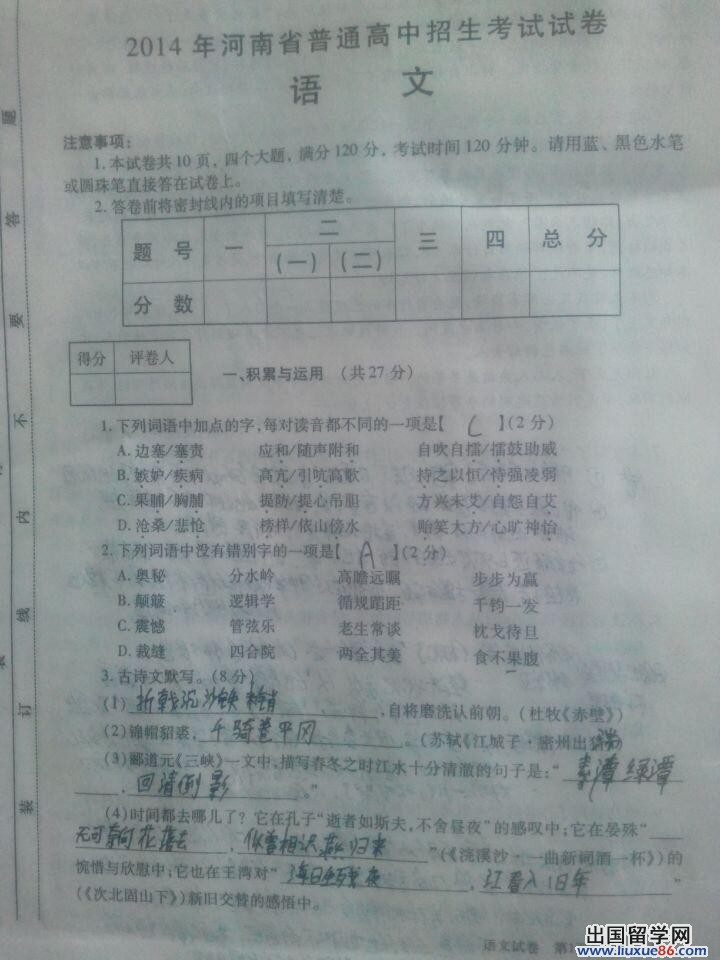 2014年河南省普通高中招生考试试卷
语 文
注意事项:
1.本试卷共10页,四个大题,满分120分,考试时间120分钟。请用蓝、黑色水笔
或圆珠笔直接答在试卷上。
2.答卷前将密封线内的项目填写清楚。
题 号 一 二 三 四 总 分
(一) (二)
分 数
得分 评卷人
一、积累与运用 (共27分)
1.下列词语中加点的字,每对读音都不同的一项是【 C 】(2分)
A.边塞/塞责 应和/随声附和 自吹自擂/擂鼓助威
B.嫉妒/疾病 高亢/引吭高歌 持之以恒/恃强凌弱
C.果脯/胸脯 提防/提心吊胆 方兴未艾/自怨自艾
D.沧桑/悲怆 榜样/依山傍水 贻笑大方/心旷神怡
2.下列词语中没有错别字的一项是【 A 】(2分)
A.奥秘 分水岭 高瞻远瞩 步步为赢
B.颠簸 逻辑学 循规蹈距 千钧一发
C.震憾 管弦乐 老生常谈 枕戈待旦
D.裁缝 四合院 两全其美 食不果腹
3.古诗文默写。(8分)
(1) 折戟沉沙铁未销 ,自将磨洗认前朝。(杜牧《赤壁》)
(2)锦帽貂裘, 千骑卷平冈 。(苏轼《江城子·密州出猎》
(3)郦道元《三峡》一文中,描写春冬之时江水十分清澈的句子是:“ 素潭绿潭
, 回清倒影 。”
(4)时间都去哪儿了?它在孔子“逝者如斯夫,不舍昼夜”的感叹中;它在晏殊“
无可奈何花落去 , 似曾相识燕归来 ”(《浣溪沙·一曲新词酒一杯》)的
惋惜与欣慰中;它也在王湾对“ 海日生残夜 , 江春入旧年 ”
(《次北固山下》)新旧交替的感悟中。
语文试卷 第1
题
答
要
不
内
线
订
装
出国留学网
www.liuxue86.com